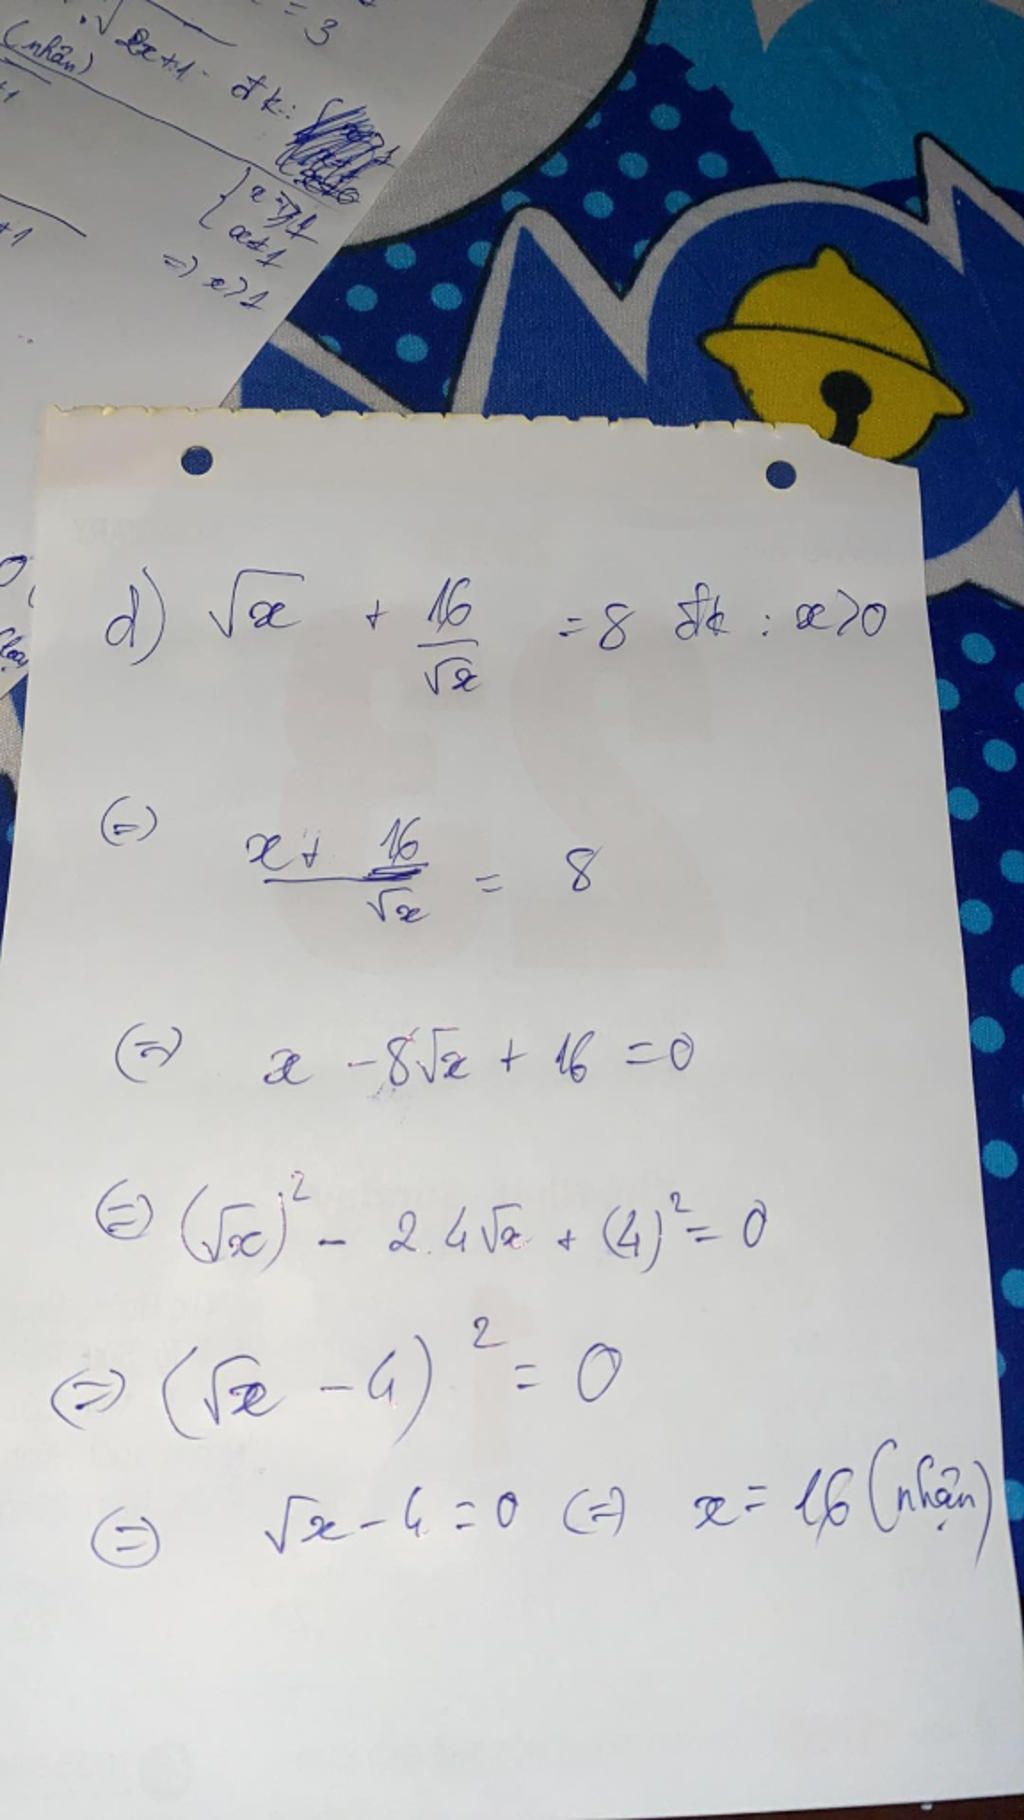 = 3
√2x+1 - đk:
(nhân)
{ x ≥ 1
x ≠ 1
=> x > 1
d) √x + 16/√x = 8 đk : x > 0
(=) x + 16/√x = 8
(=) x - 8√x + 16 = 0
(=) (√x)² - 2.4√x + (4)² = 0
(=) (√x - 4)² = 0
(=) √x - 4 = 0 (=) x = 16 (nhận)